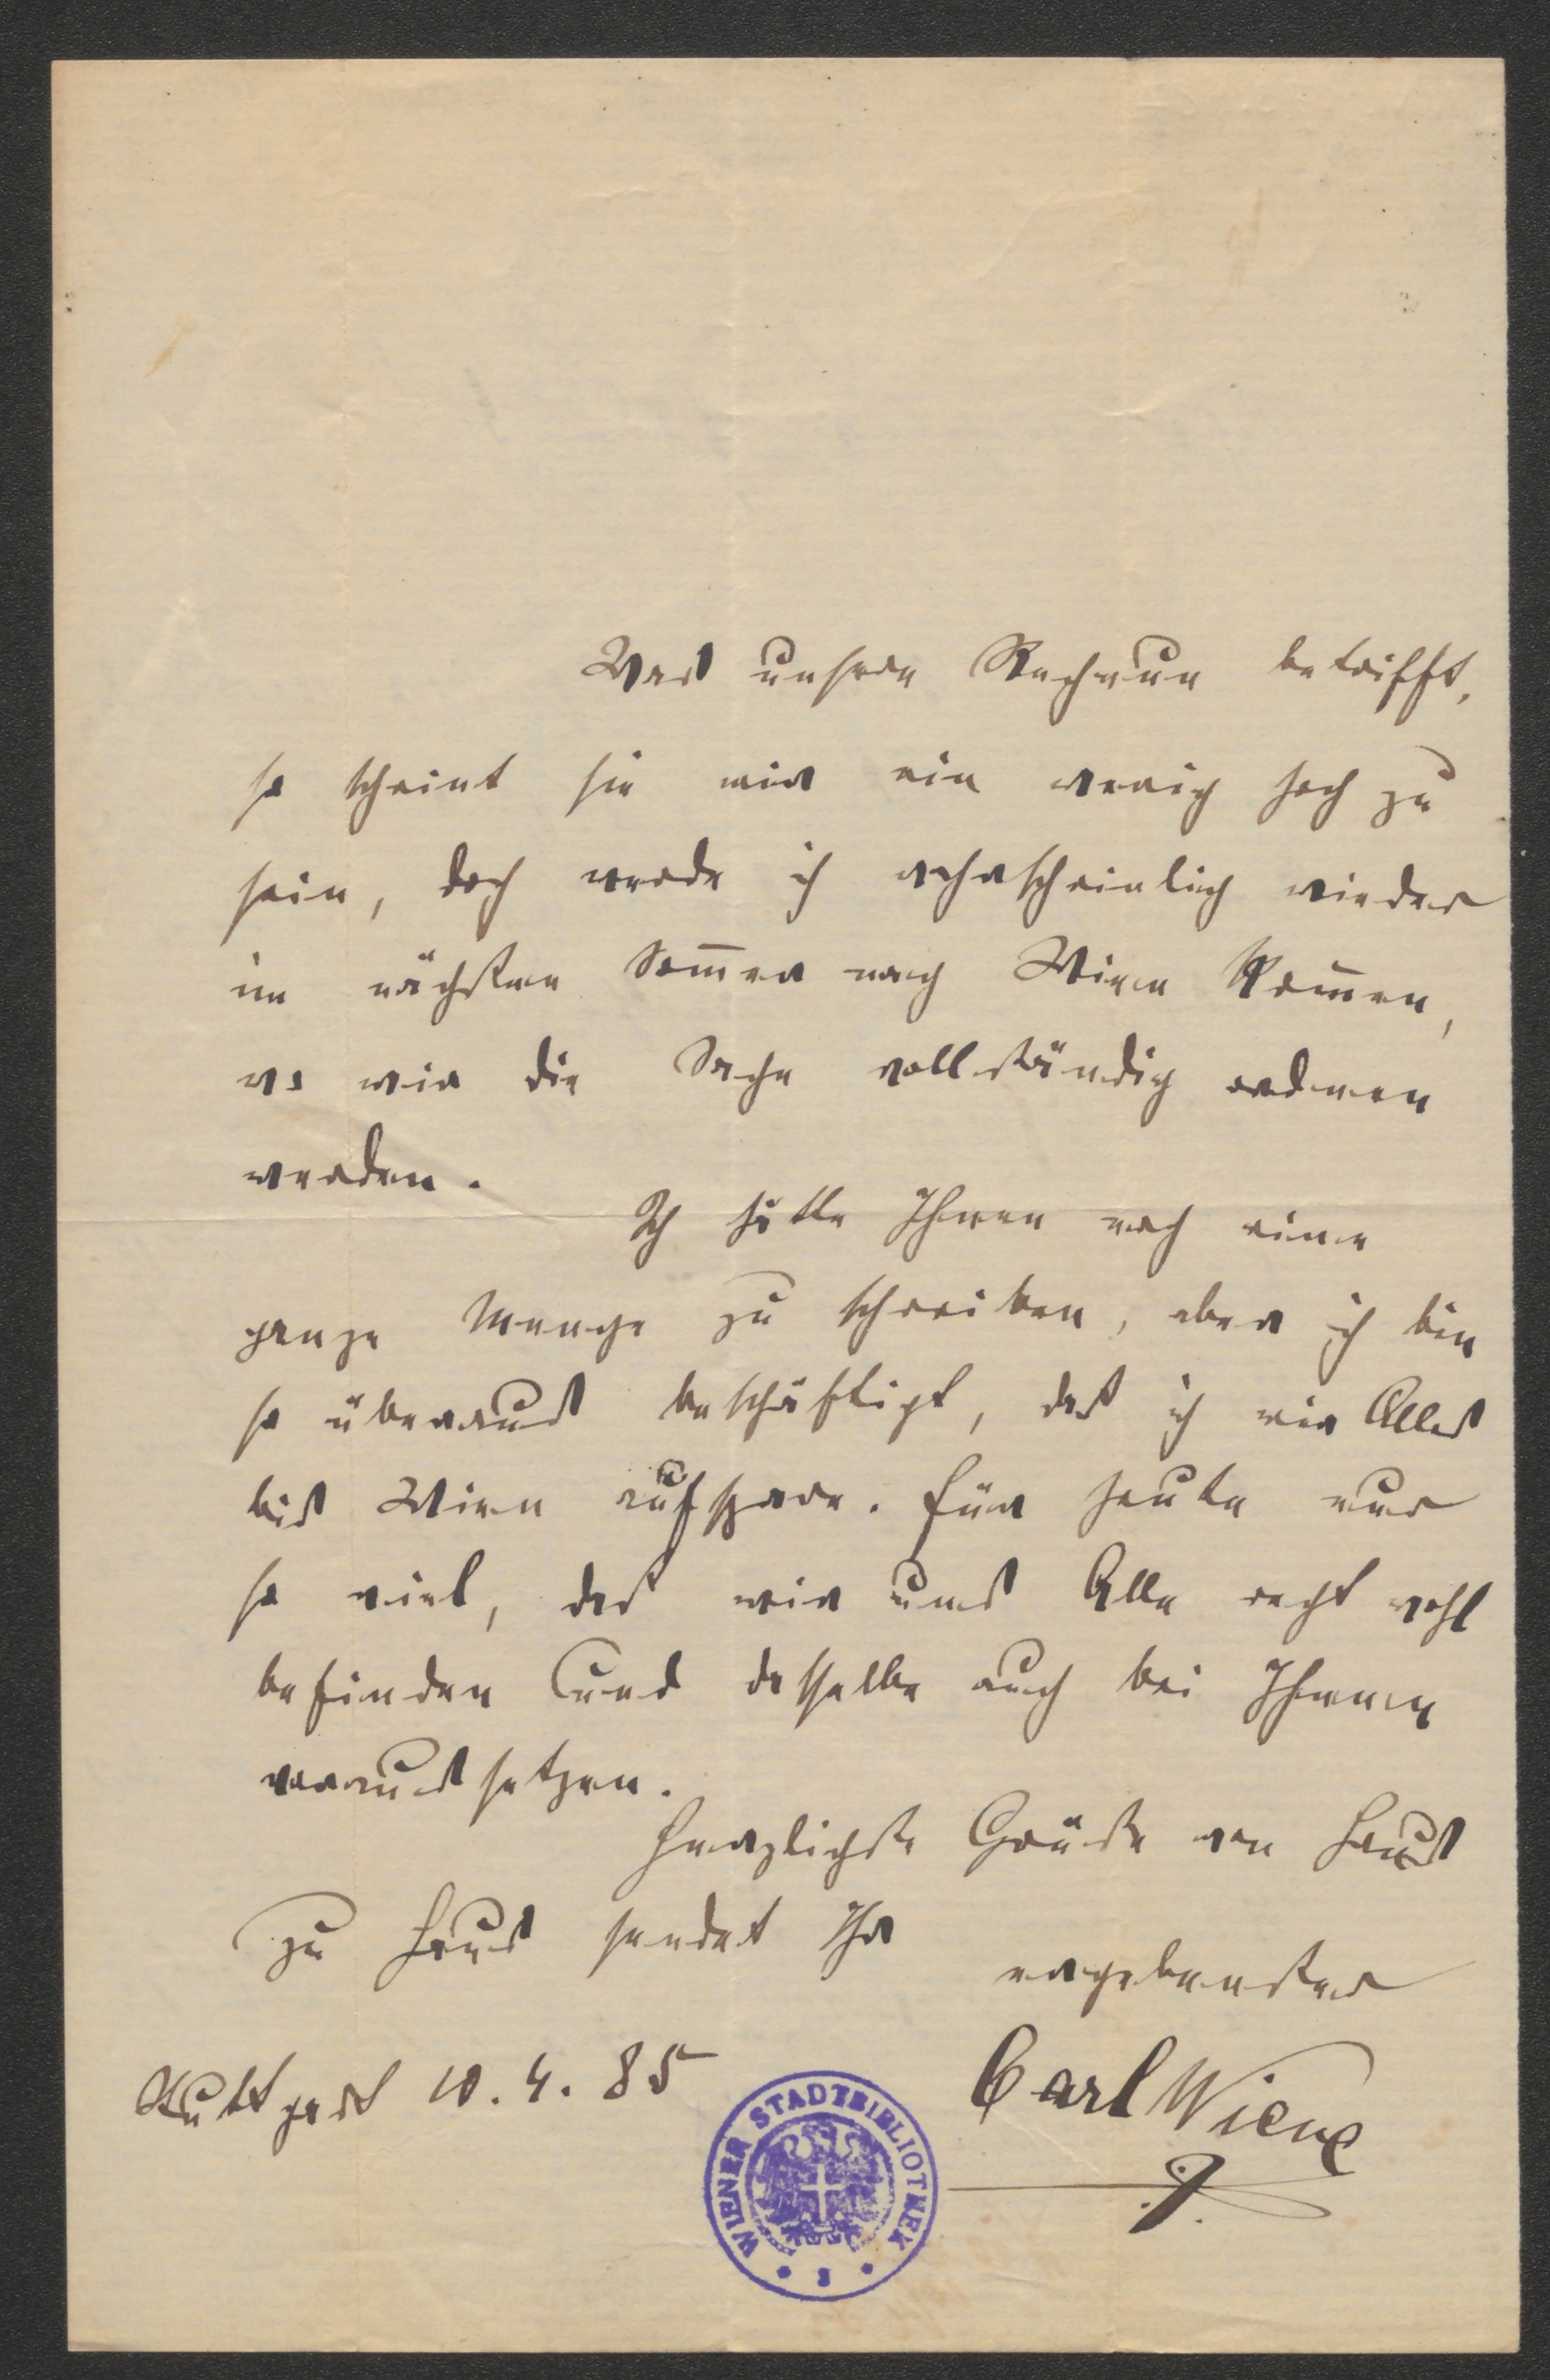 Was unsere Rechnun betrifft,
so scheint sie mir ein wenig hoch zu
sein, doch werde ich wahrscheinlich wieder
im nächsten Som̅er nach Wien kom̅en,
wo wir die Sache vollständig ordnen
werden.
Ich hätte Ihnen noch eine
ganze Menge zu schreiben, aber ich bin
so überaus beschäftigt, daß ich mir Alles
bis Wien aufspare. Für heute nur
so viel, daß wir uns Alle recht wohl
befinden und dasselbe auch bei Ihnen
voraussetzen.
Herzlichste Grüße von Haus
zu Haus sendet Ihr
ergebenster
Carl
Stuttgart 10.4.85
WIENER STADTBIBLIOTHEK